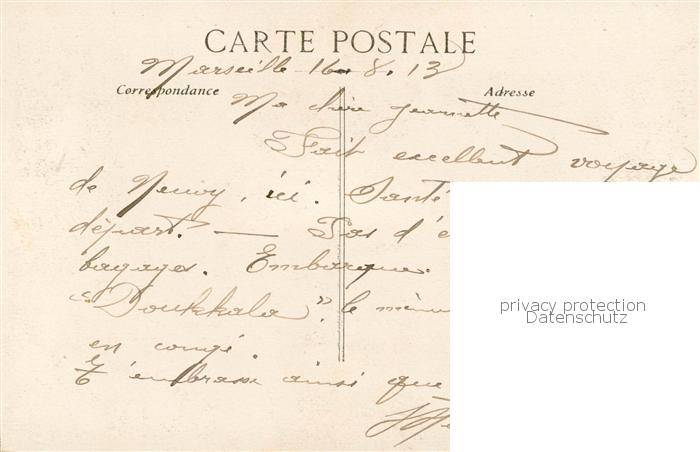 CARTE POSTALE
Marseille 16-8.13
Correspondance
Adresse
Ma chère Jeannette
Fait excellent voyage
de Neuvy, ici. Santé
départ. — Pas d'e
bagages. Embarque
"Doukkala", le même
en congé.
T'embrasse ainsi que
privacy protection
Datenschutz